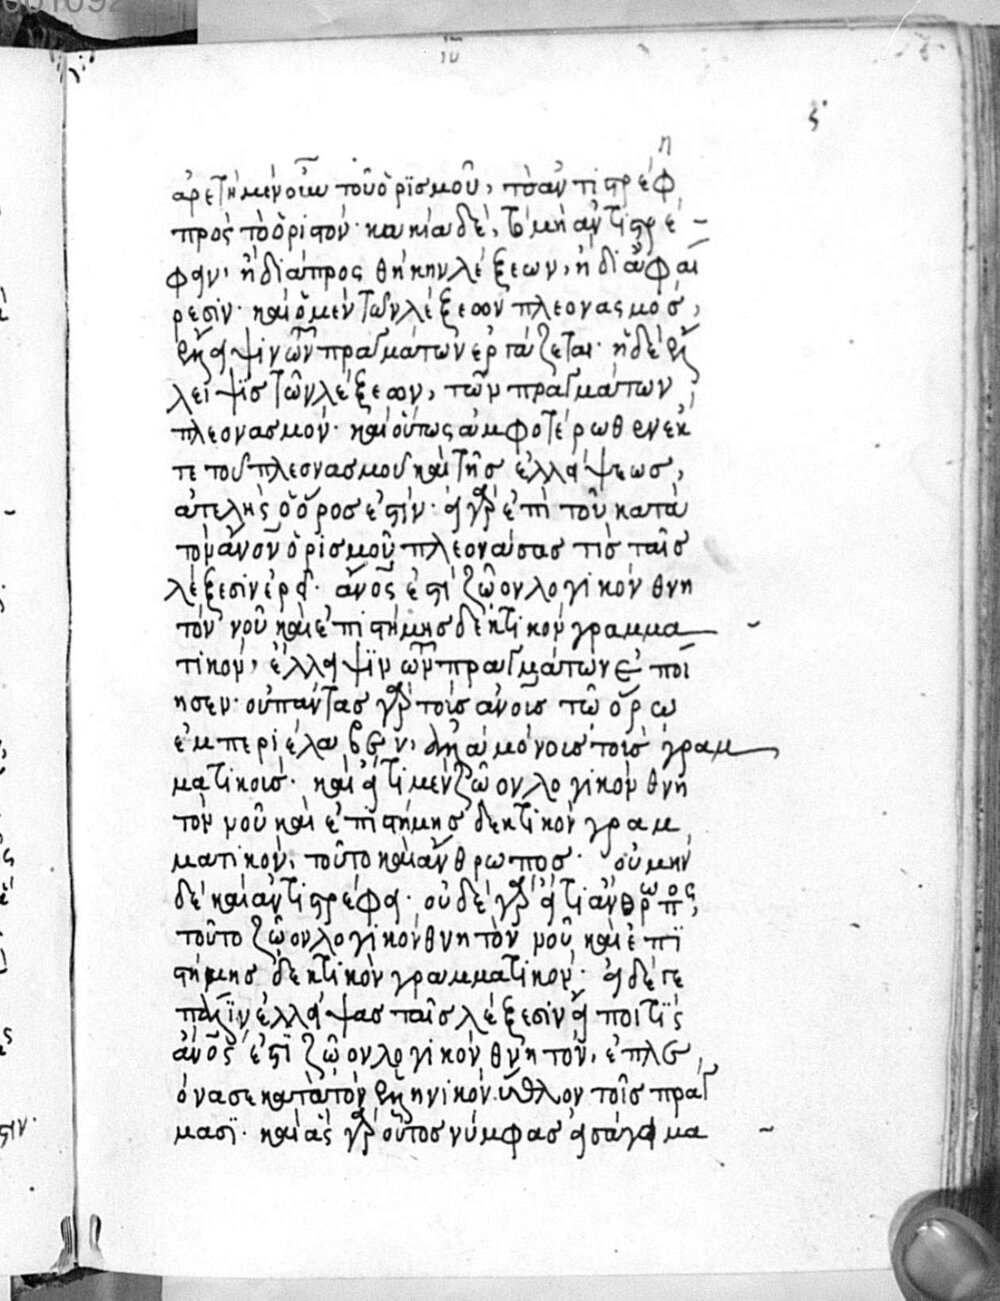 ϛʹ
ἀρετὴ μέν οὖν τοῦ ὁρϊσμοῦ, τὸ ἀντιστρέφη
πρὸς τὸ ὁριστόν· κακία δέ, τὸ μὴ ἀντιστρέ
φειν, ἢ διὰ προσθήκην λέξεων, ἢ δι ἀφαί
ρεσιν· καὶ ὁ μὲν τῶν λέξεων πλεονασμὸσ,
ἔλλειψιν τῶν πραγμάτων ἐργάζεται· ἡ δὲ ἔλ
λειψϊσ τῶν λέξεων, τῶν πραγμάτων
πλεονασμόν· καὶ οὕτως ἀμφοτέρωθεν ἐκ
τε τοῦ πλεονασμοῦ καὶ τῆσ ἐλλείψεωσ,
ἀτελὴς ὁ ὅροσ ἐστίν· εἰ γὰρ ἐπὶ τοῦ κατὰ
τὸν ἄνον ὁρισμοῦ πλεονάσασ τὶσ ταῖσ
λέξεσιν ἐρεῖ· ἄνος ἐστὶ ζῶον λογικόν θνη
τόν νοῦ καὶ ἐπιστήμησ δεκτικόν γραμμα
τικόν, ἔλλειψϊν τῶν πραγμάτων ἐποί
ησεν· οὐ πάντασ γὰρ τοὺσ ἀνουσ τῶ ὅρω
ἐμπεριέλαβεν, ἀλλὰ μόνουσ τοὺσ γραμ
ματικούσ· καὶ εἴ τι μὲν ζῶον λογικόν θνη
τὸν νοῦ καὶ ἐπιστήμησ δεκτικὸν γραμ
ματικόν, τοῦτο καὶ ἄνθρωποσ· οὐ μὴν
δὲ καὶ ἀντιστρέφει· οὐδὲ γὰρ εἴ τι ἄνθρωπος,
τοῦτο ζῶον λογικόν θνητὸν νοῦ καὶ ἐπϊ
στήμησ δεκτικὸν γραμματικόν· εἰ δέ γε
πάλϊν ἐλλείψασ ταῖσ λέξεσιν εἴποι τὶς
ἄνος ἐστϊ ζῶον λογικὸν θνητόν, ἐπλε
όνασε κατὰ τὸν ἑλληνικὸν ὕθλον τοῖσ πράγ
μασϊ· καὶ ἃς γὰρ οὗτοσ νύμφασ εἰσάγει μα